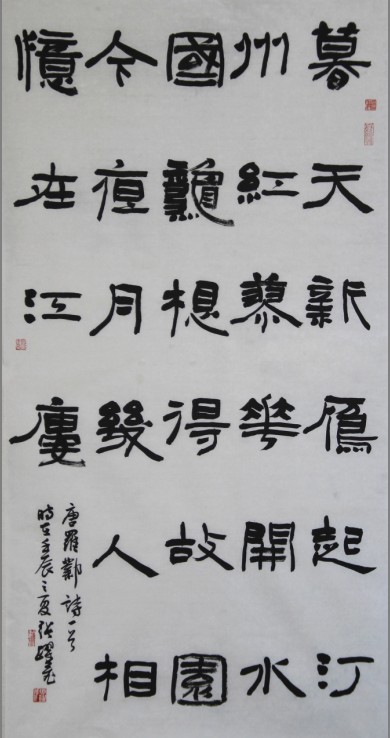 暮天新鴈起汀
州紅蓼華開水
國愁想得故園
今夜月幾人相
憶在江廔
唐羅鄴詩一首
時在壬辰之夏張躍